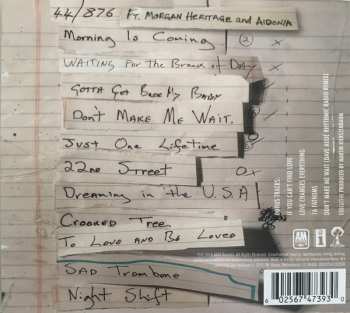 44/876 FT. MORGAN HERITAGE AND AIDONIA
Morning Is Coming
WAITING FOR THE BREAK OF DAY
GOTTA GET BACK MY BABY
DON'T MAKE ME WAIT.
JUST ONE LIFETIME
22ND STREET
Dreaming in the U.S.A
CROOKED TREE
TO LOVE AND BE LOVED
SAD TROMBONE
Night Shift
BONUS TRACKS:
IF YOU CAN'T FIND LOVE
LOVE CHANGES EVERYTHING
16 FATHOMS
DON'T MAKE ME WAIT (DAVE AUDÉ RHYTHMIC RADIO REMIX)
A&M
6 02567 47393 0